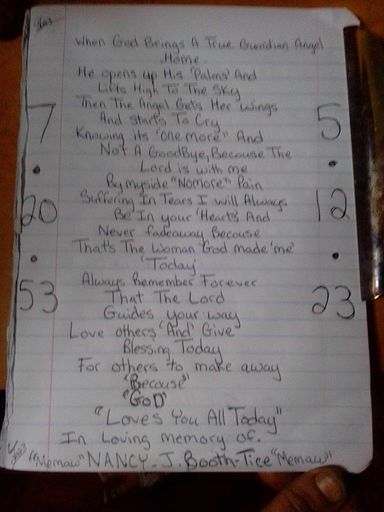 When God Brings A True Guardian Angel
Home.
He opens up His 'Palms' And
Lifts High To The Sky
Then The Angel Gets Her wings
And starts To Cry
Knowing its "One more" And
Not A GoodBye, Becouse The
Lord is with me
By myside "Nomore" Pain
Suffering In Tears I will Always
Be In your 'Hearts' And
Never fadeaway Becouse
That's The Woman 'God made 'me'
'Today'
Always Remember Forever
That The Lord
Guides your way
Love others 'And' Give'
Blessing Today
For others to make away
'Because'
'GOD'
"Loves You All Today"
In Loving memory of.
"Memaw" NANCY-J. Booth-Tice "Memaw"
7
•
20
•
53
5
•
12
•
23